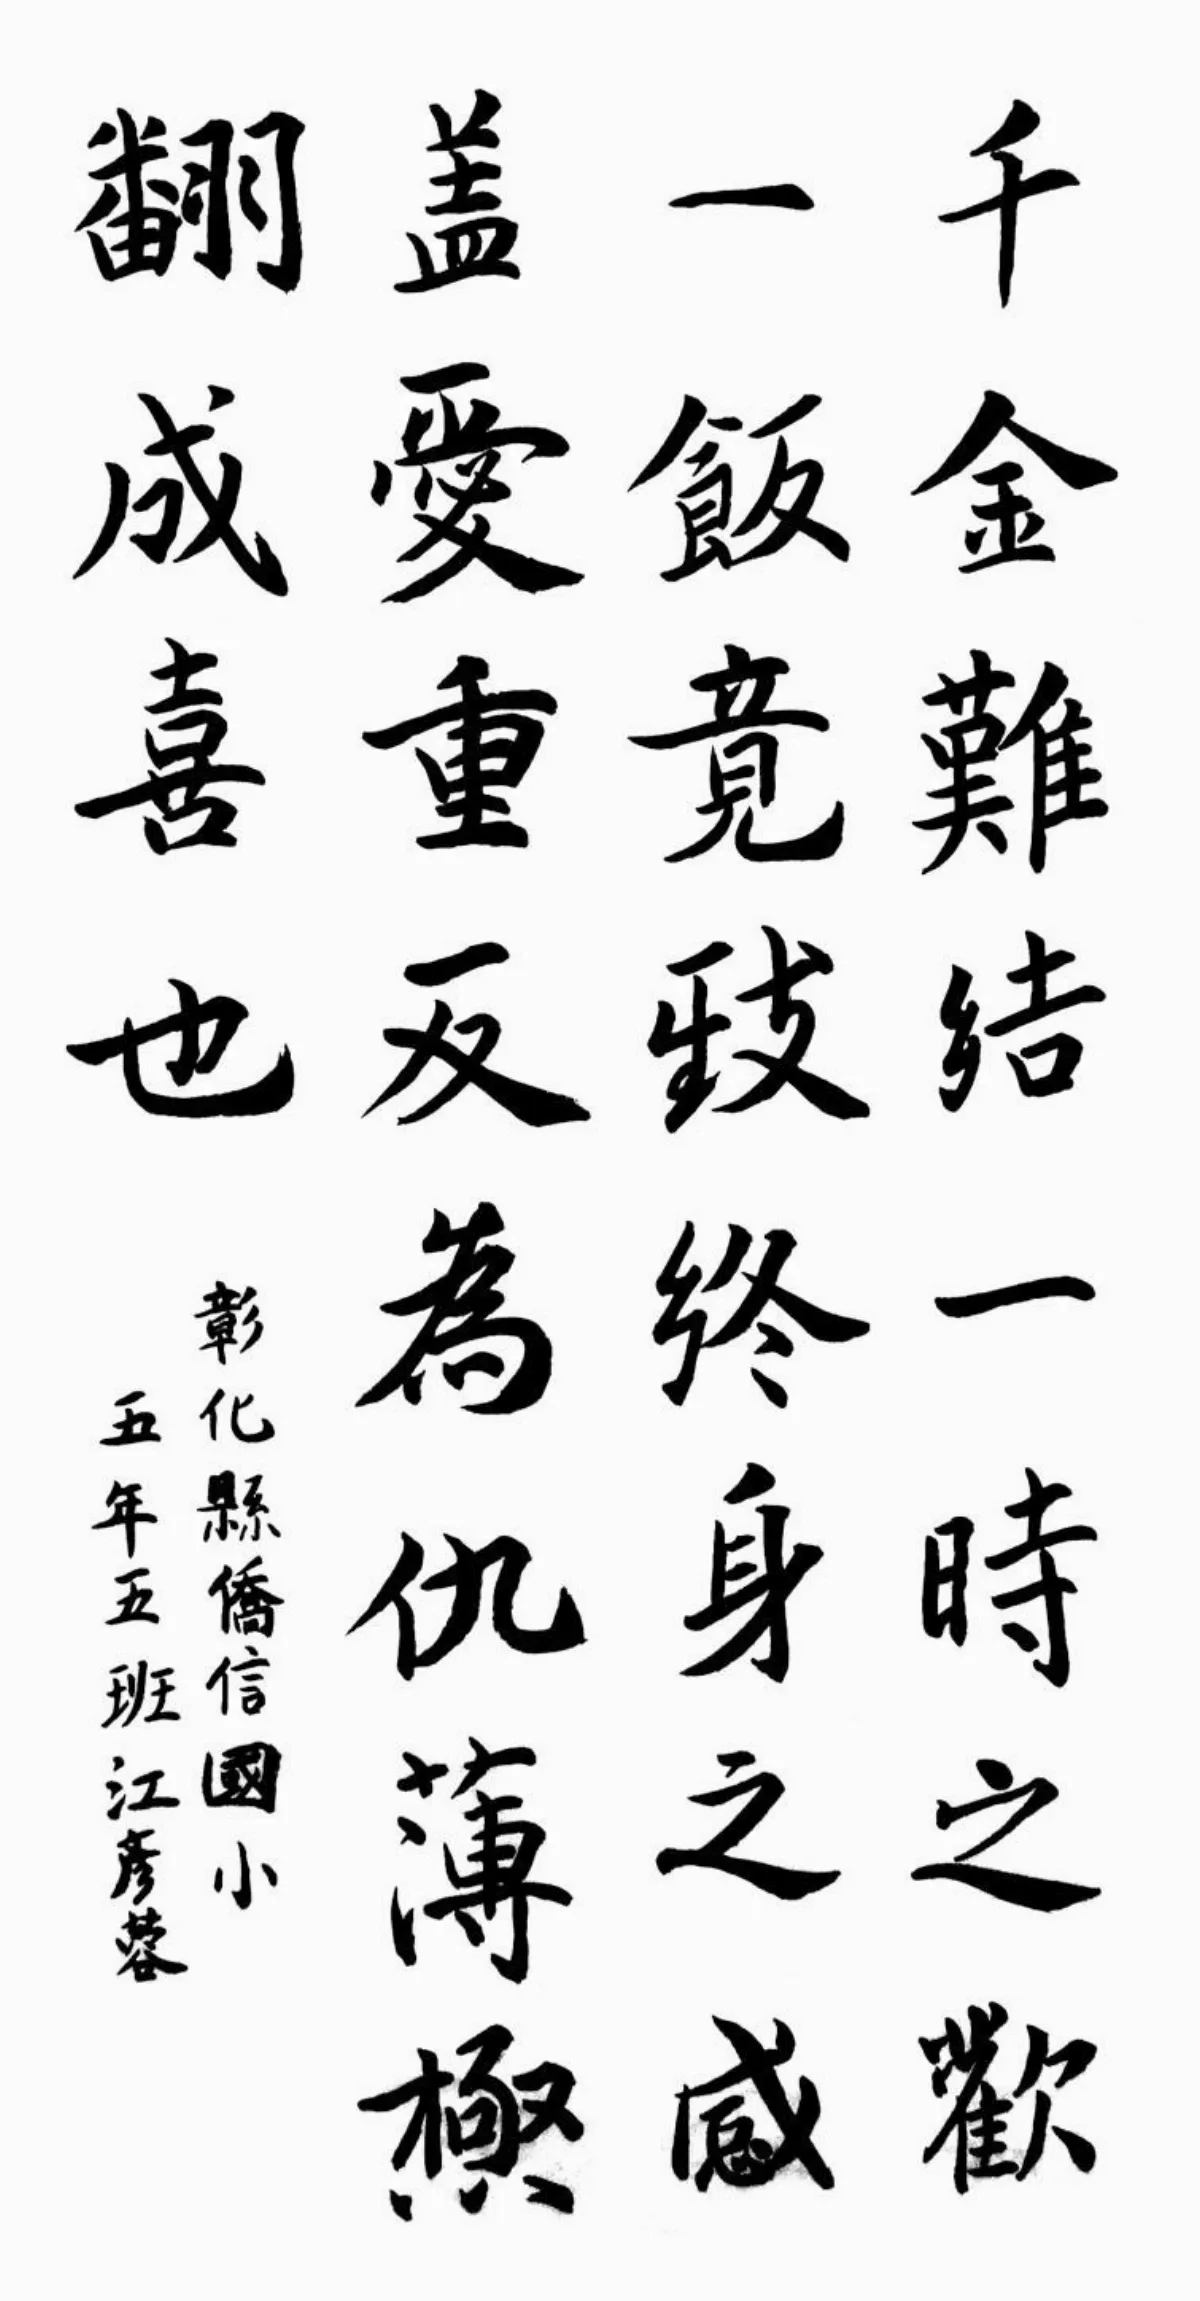 千金難結一時之歡
一飯竟致終身之感
蓋愛重反為仇薄極
翻成喜也
彰化縣僑信國小
五年五班江彥蓉